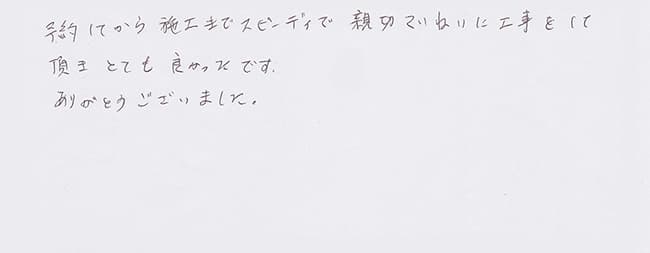 予約してから 施工までスピーディで 親切ていねいに工事をして
頂き とても 良かったです.
ありがとうございました。